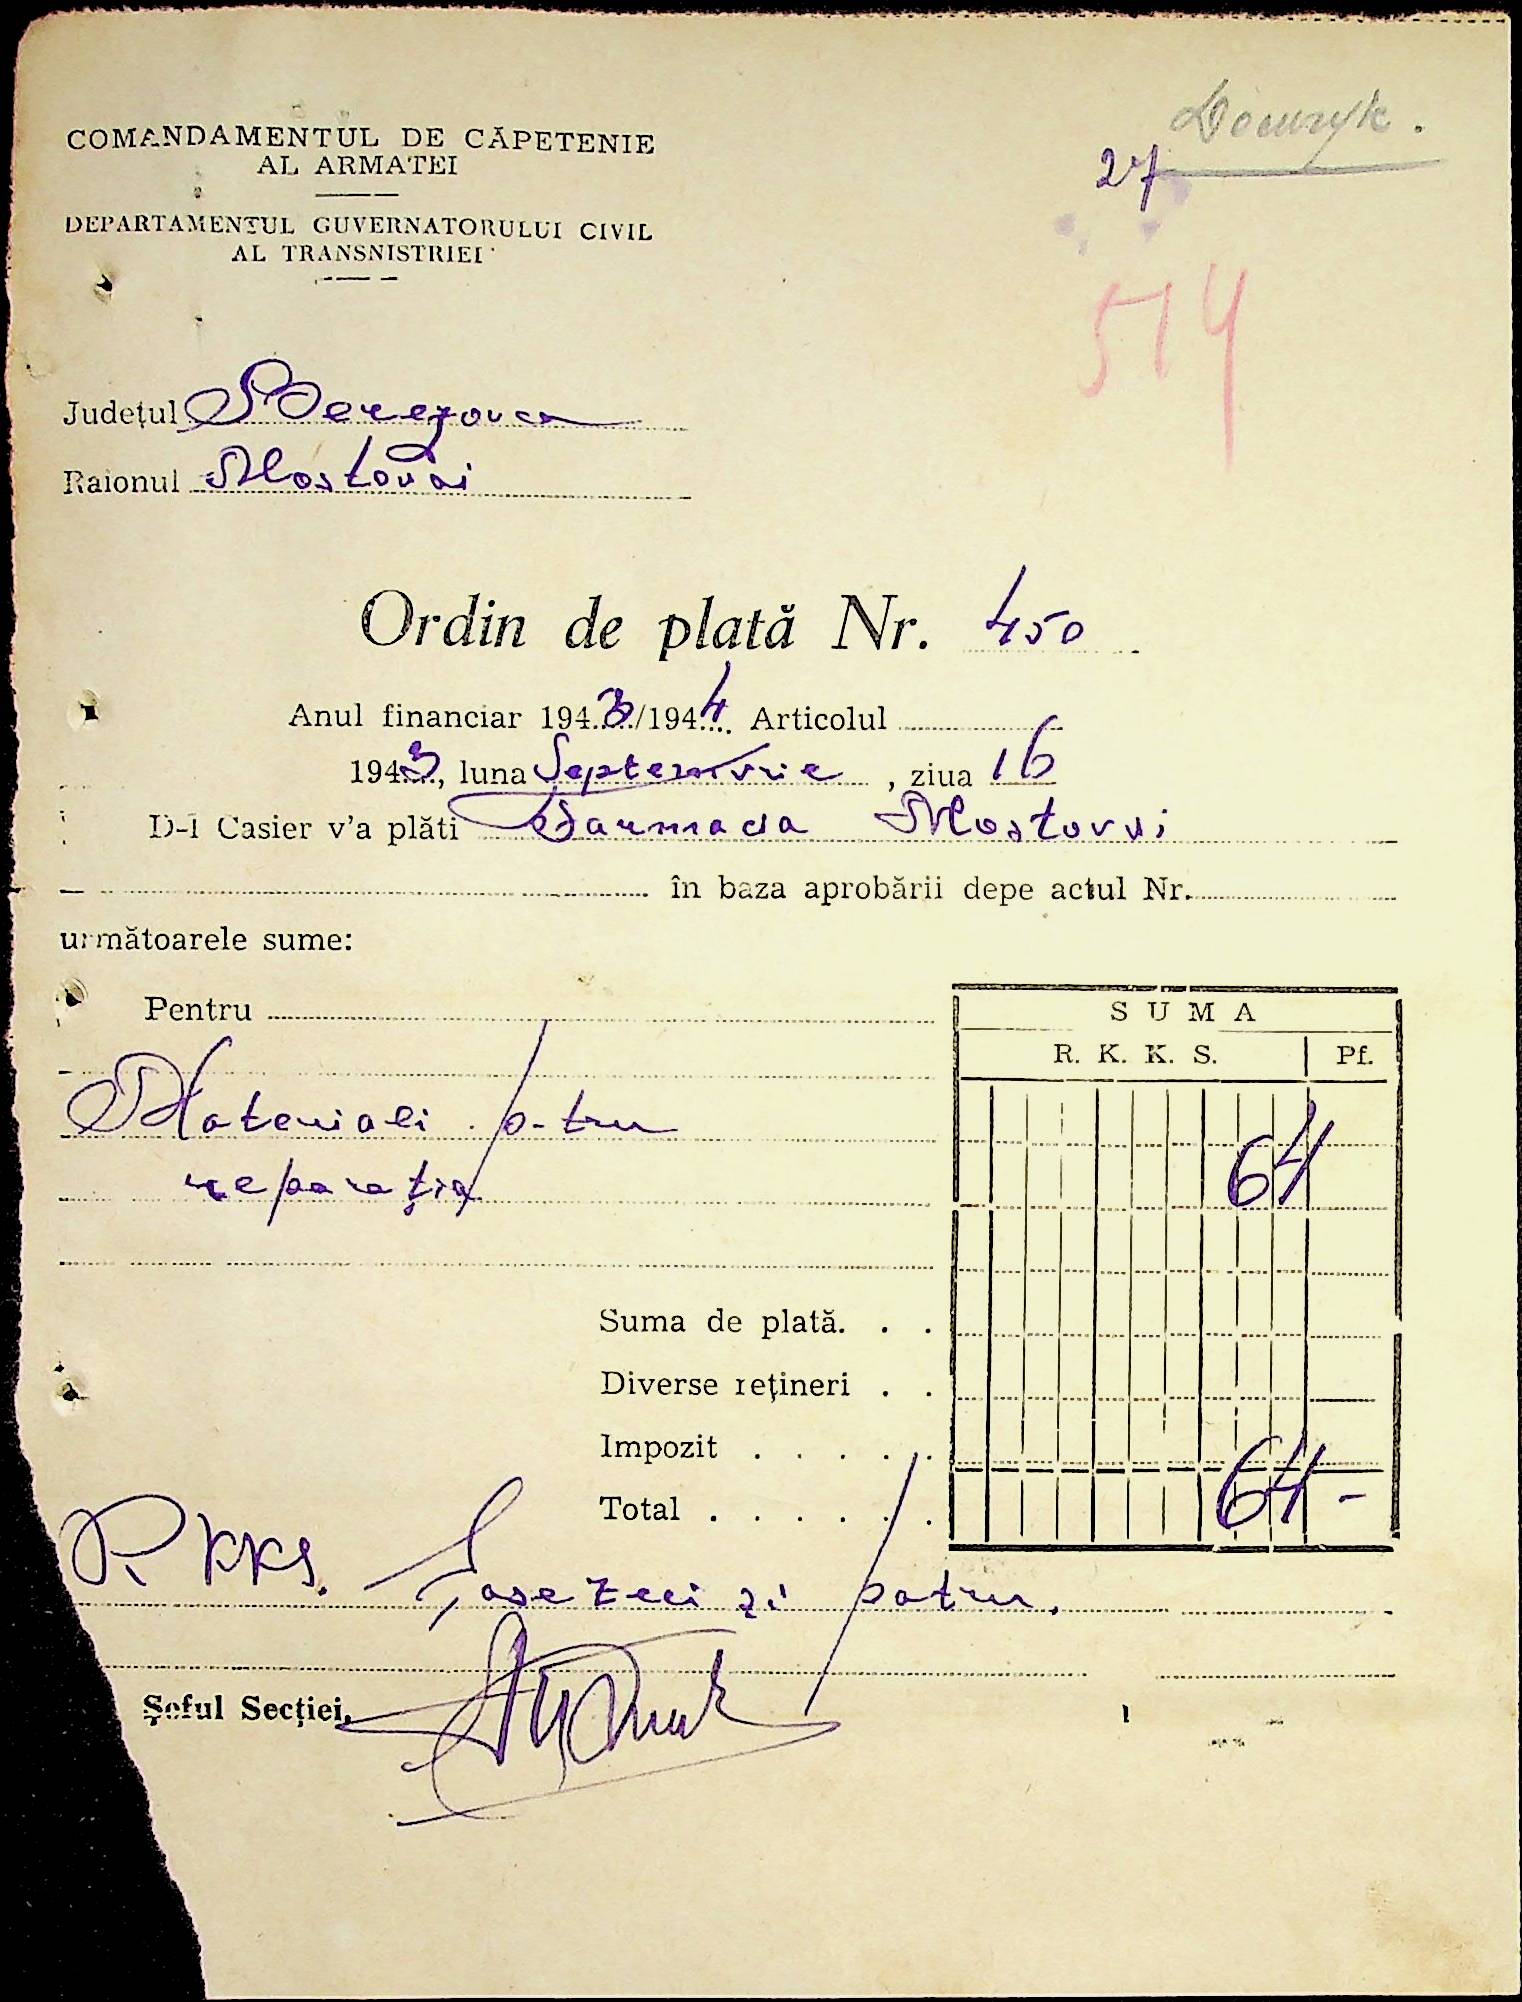 COMANDAMENTUL DE CĂPETENIE
AL ARMATEI
DEPARTAMENTUL GUVERNATORULUI CIVIL
AL TRANSNISTRIEI
27
514
Județul Berezovca
Raionul Mostovoi
Ordin de plată Nr. 450
Anul financiar 1943/1944 Articolul
1943, luna Septemvrie, ziua 16
D-l Casier v'a plăti Farmacia Mostovoi
în baza aprobării depe actul Nr.
următoarele sume:
Pentru
SUMA
R. K. K. S. Pf.
Materiali p-tru 64
reparația
Suma de plată. . .
Diverse rețineri . .
Impozit . . . . .
Total . . . . . . 64 -
R. KKS. Șasezeci și patru.
Șeful Secției,